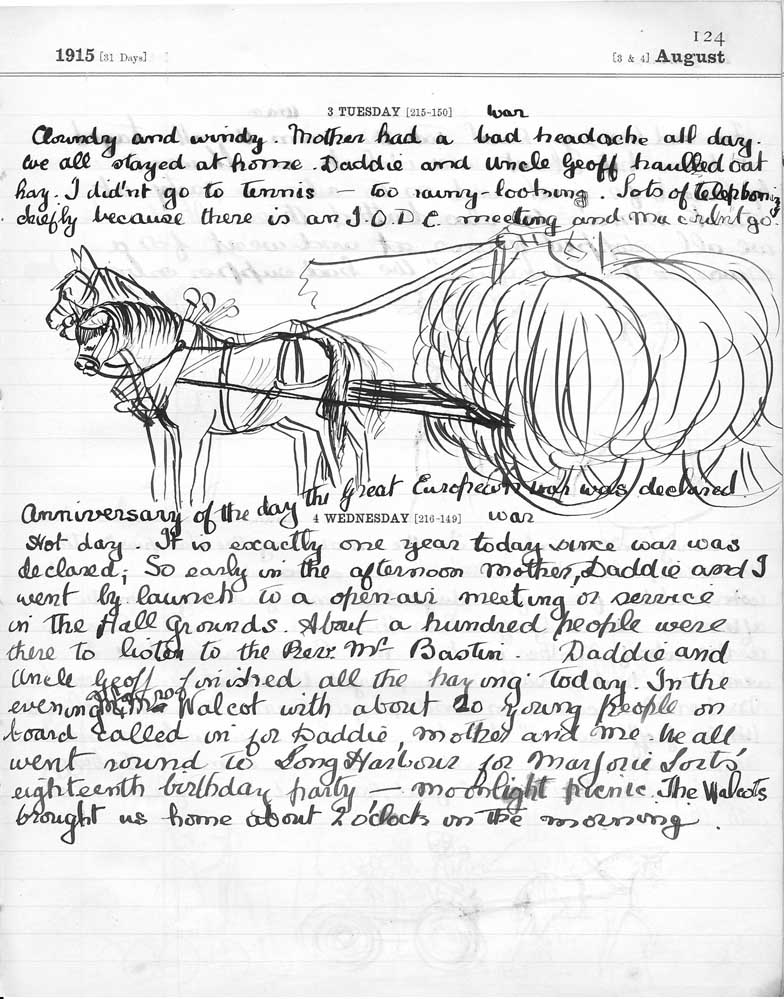 124
1915 [31 Days]
[3 & 4] August
3 TUESDAY [215-150] war
Cloundy and windy. Mother had a bad headache all day.
We all stayed at home. Daddie and Uncle Geoff haulled oat
hay. I did'nt go to tennis — too rainy-looking. Lots of telephoning
chiefly because there is an I.O.D.E. meeting and Ma could'nt go!
Anniversary of the day the Great European war was declared
4 WEDNESDAY [216-149] war
Hot day. It is exactly one year today since war was
declared; So early in the afternoon Mother, Daddie and I
went by launch to a open-air meeting or service
in the Hall Grounds. About a hundred people were
there to listen to the Revr. Mr Bastin. Daddie and
Uncle Geoff finished all the haying today. In the
evening Mrs Walcot with about 20 young people on
board called in for Daddie, mother and me. We all
went round to Long Harbour for Marjorie Lorts'
eighteenth birthday party — moonlight picnic. The Walcots
brought us home about 2 o'clock in the morning.